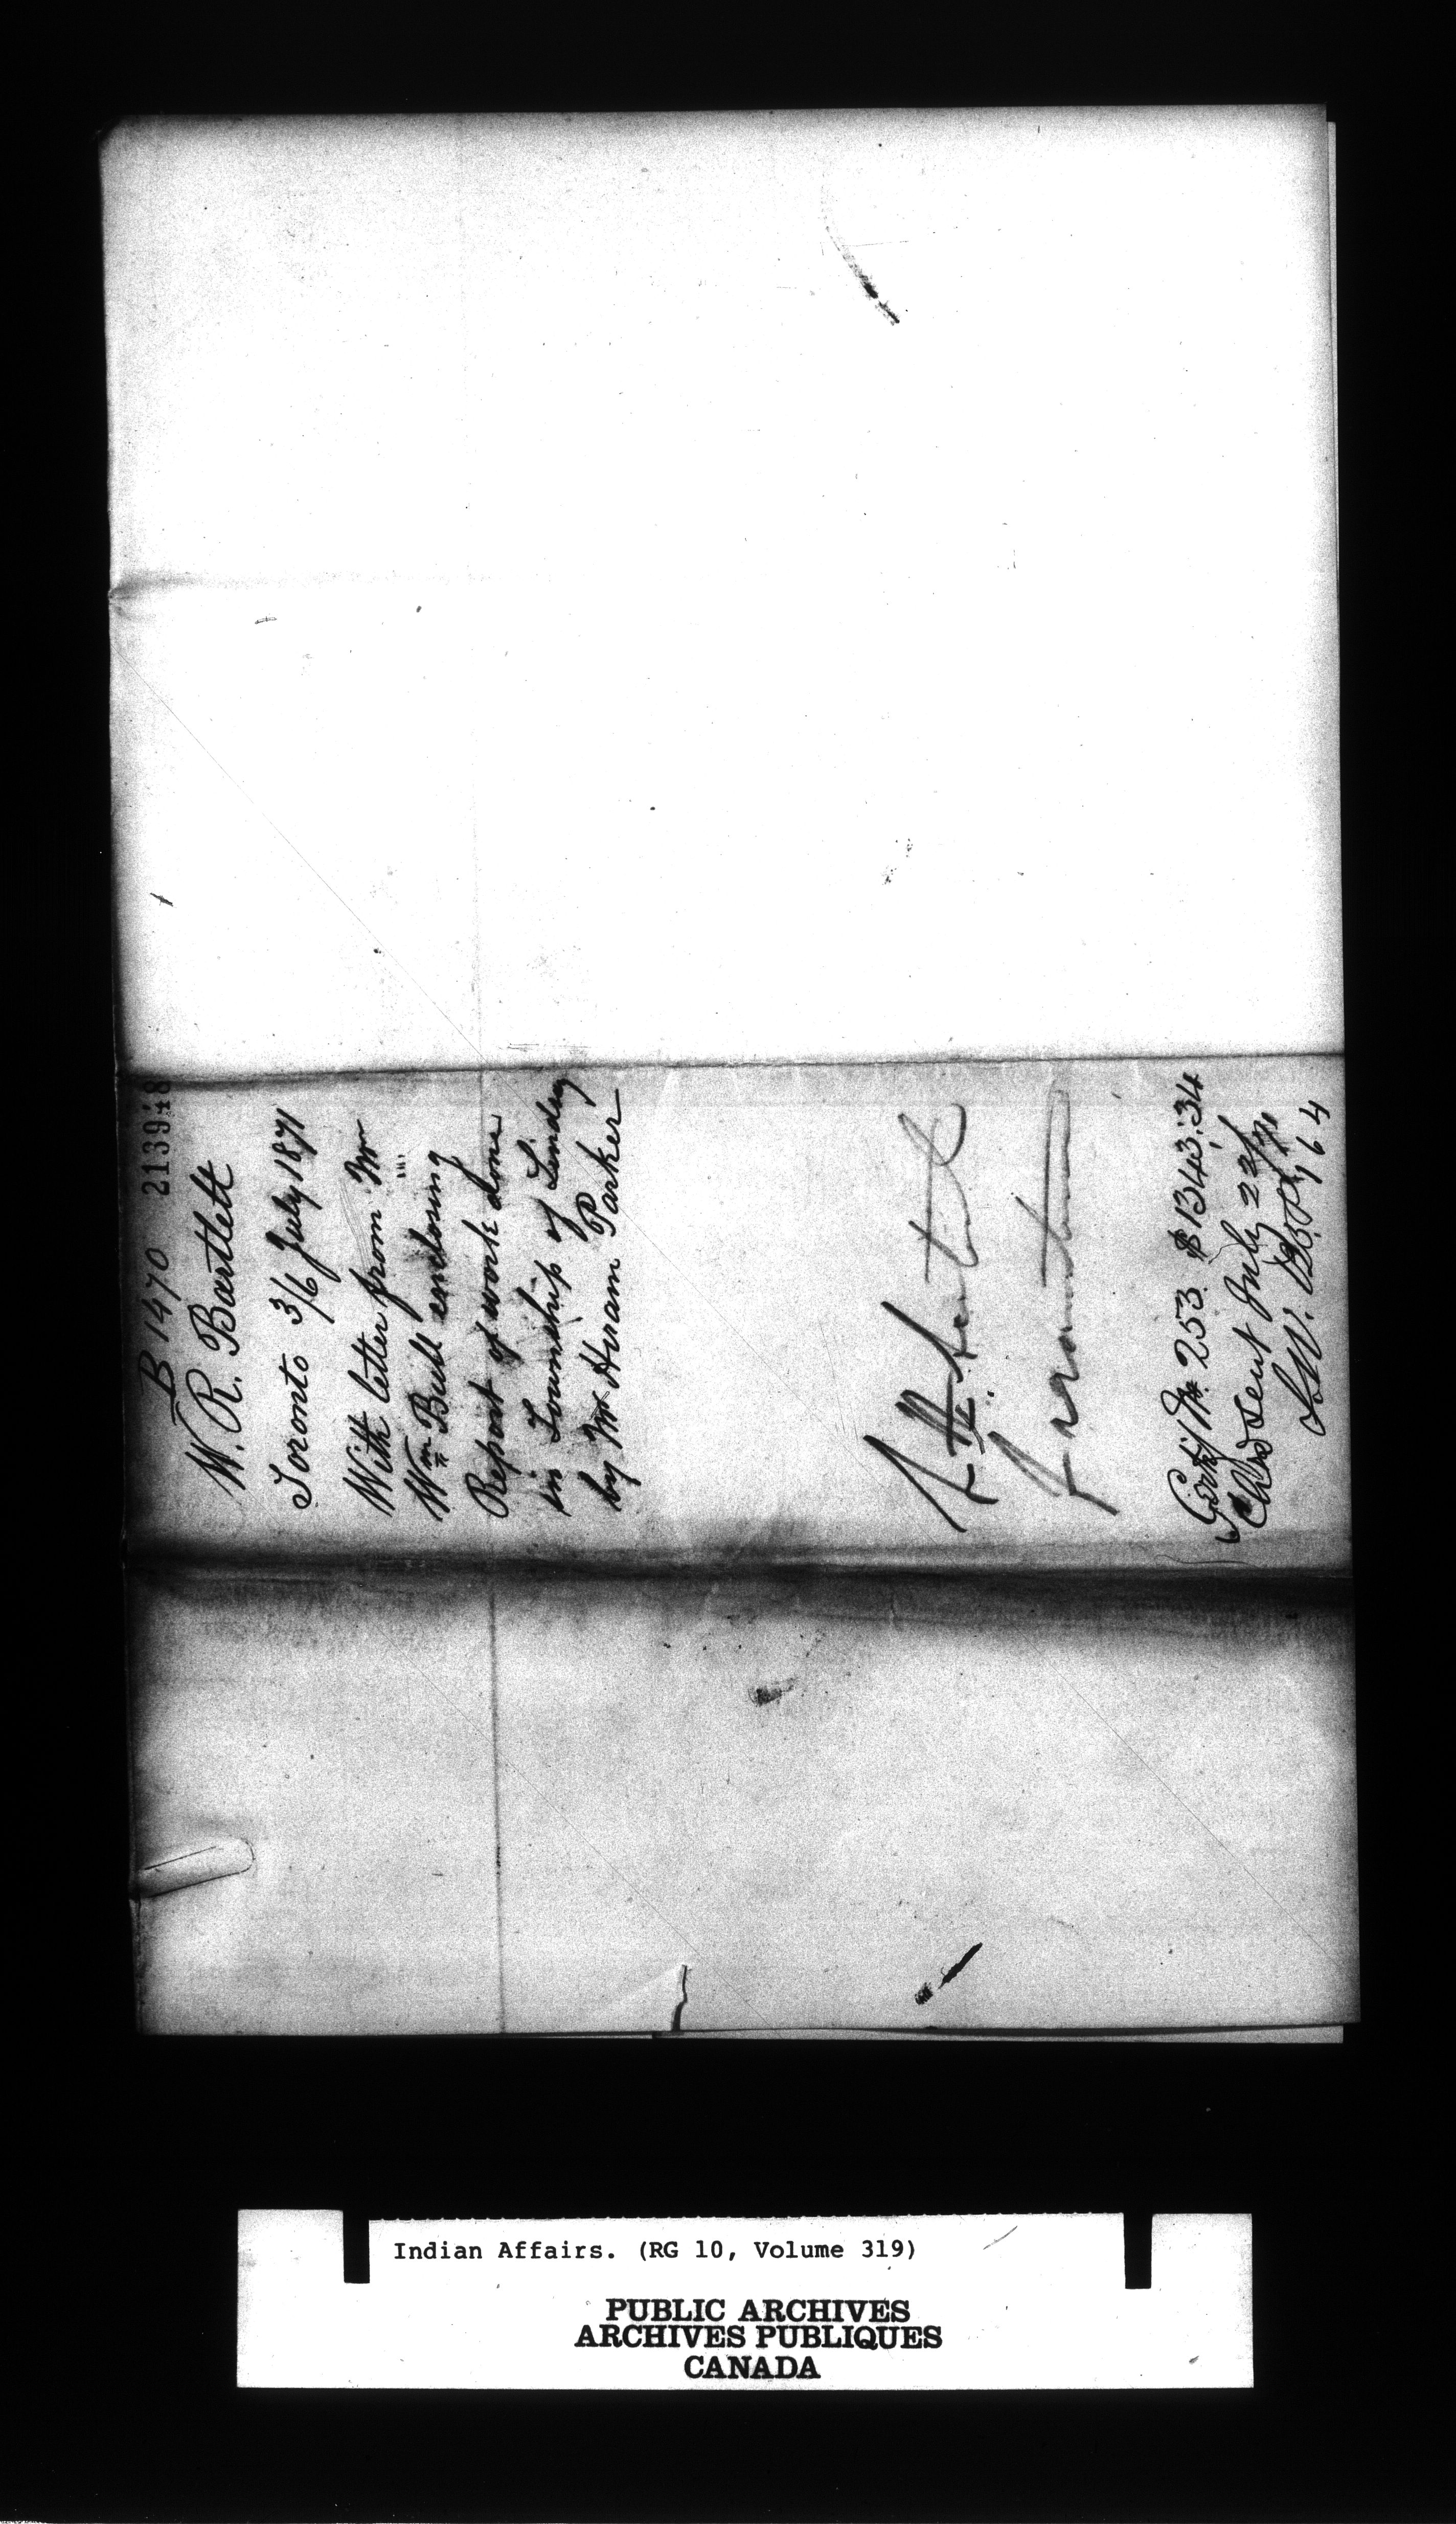 B 1470 213948
W. R. Bartlett
Toronto 3/6 July 1871
With letter from Mr
Wm Bull enclosing
Report of work done
in Township of Lindsay
by Mr Hiram Parker
No. 253 $1343.34
sent July 22/71
L.W. 164
Indian Affairs. (RG 10, Volume 319)
PUBLIC ARCHIVES
ARCHIVES PUBLIQUES
CANADA